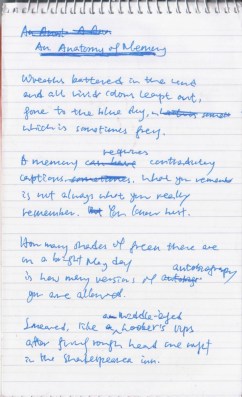 An Anatomy of Memory
Wreaths battered in the wind
and all vivid colours leapt out,
gone to the blue dry,
which is sometimes grey.
requires
A memory can have contradictory
captions sometimes. What you remember
is not always what you really
remember. But You know that.
How many shades of green there are
on a bright May day
autobiography
is how many versions of
you are allowed.
a middle-aged
Smeared, like an hooker's lips
after giving rough head one night
in the Shakespeare inn.